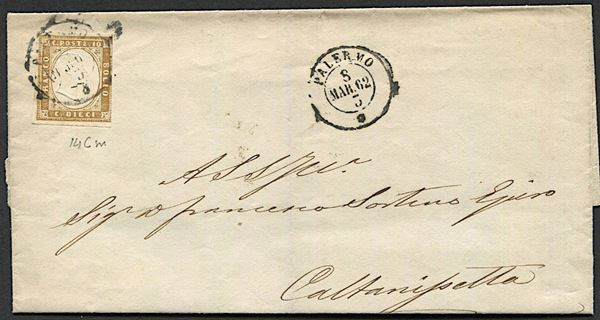 C. POSTE 10
FRANCO
BOLLO
C. DIECI
14Cm
PALERMO
8
MAR. 62
3
A S S
Sig.r D Francesco Sortino
Caltanissetta